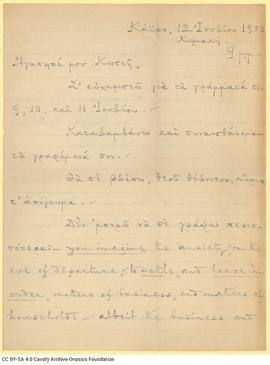 Κάϊρο, 12 Ἰουνίου 19
Κυριακή.
9 μμ.
Ἀγαπητέ μου Κωστῆ,
Σ' εὐχαριστῶ γιὰ τὰ γράμματά σου
9, 10, καὶ 11 Ἰουνίου. —
Καταλαμβάνω καὶ συναισθάνομαι
τὰ γραφόμενά σου. —
Θὰ σὲ βλέπω, Θεοῦ θέλοντος, αὔριο
τ' ἀπόγευμα. —
Δὲν 'μπορῶ νὰ σὲ γράψω περισ-
σότερα: you imagine the anxiety, on the
eve of departure, to settle, and leave in
order, matters of business, and matters of
household: / albeit the business and
CC BY-SA 4.0 Cavafy Archive Onassis Foundation